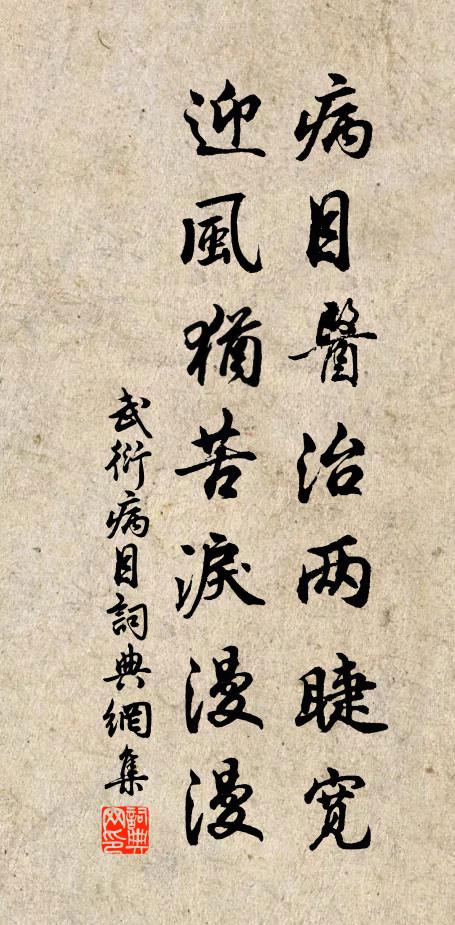 病目醫治兩睫寬
迎風猶苦淚漫漫
武衍病目詞典網集
詞典网印